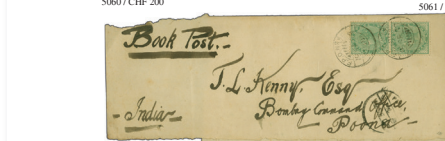 5060 / CHF 200
5061 /
Book Post.-
T. L. Kenny, Esq
Bombay Command Office,
- India -
Poona